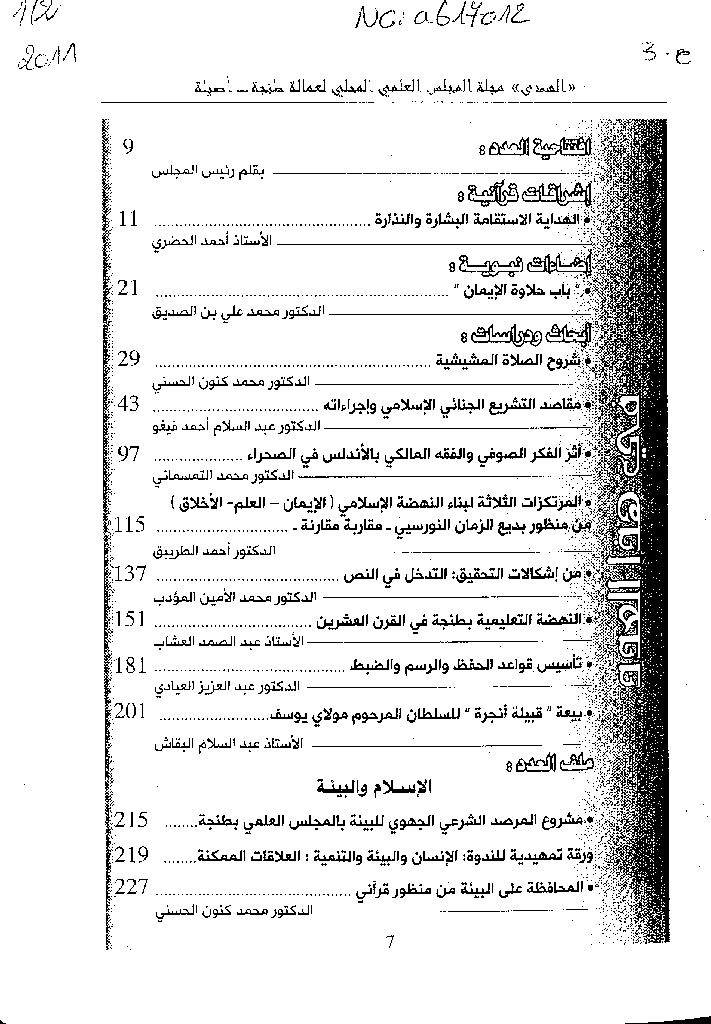 1/2
NC: a617012
2011
3-8
«الهدى» مجلة المجلس العلمي المحلي لعمالة طنجة - أصيلة
افتتاحية العدد : 9
بقلم رئيس المجلس
إشراقات قرآنية :
• الهداية الاستقامة البشارة والنذارة 11
الأستاذ أحمد الحضري
إضاءات نبوية :
• "باب حلاوة الإيمان" 21
الدكتور محمد علي بن الصديق
أبحاث ودراسات :
• شروح الصلاة المشيشية 29
الدكتور محمد كنون الحسني
• مقاصد التشريع الجنائي الإسلامي وإجراءاته 43
الدكتور عبد السلام أحمد فيغو
• أثر الفكر الصوفي والفقه المالكي بالأندلس في الصحراء 97
الدكتور محمد التمسماني
• المرتكزات الثلاثة لبناء النهضة الإسلامي (الإيمان – العلم- الأخلاق)
من منظور بديع الزمان النورسي - مقاربة مقارنة - 115
الدكتور أحمد الطريبق
• من إشكالات التحقيق: التدخل في النص 137
الدكتور محمد الأمين المؤدب
• النهضة التعليمية بطنجة في القرن العشرين 151
الأستاذ عبد الصمد العشاب
• تأسيس قواعد الحفظ والرسم والضبط 181
الدكتور عبد العزيز العيادي
• بيعة "قبيلة أنجرة" للسلطان المرحوم مولاي يوسف 201
الأستاذ عبد السلام البقاش
ملف العدد :
الإسلام والبيئة
• مشروع المرصد الشرعي الجهوي للبيئة بالمجلس العلمي بطنجة 215
ورقة تمهيدية للندوة: الإنسان والبيئة والتنمية : العلاقات الممكنة 219
• المحافظة على البيئة من منظور قرآني 227
الدكتور محمد كنون الحسني
في هذا العدد
7